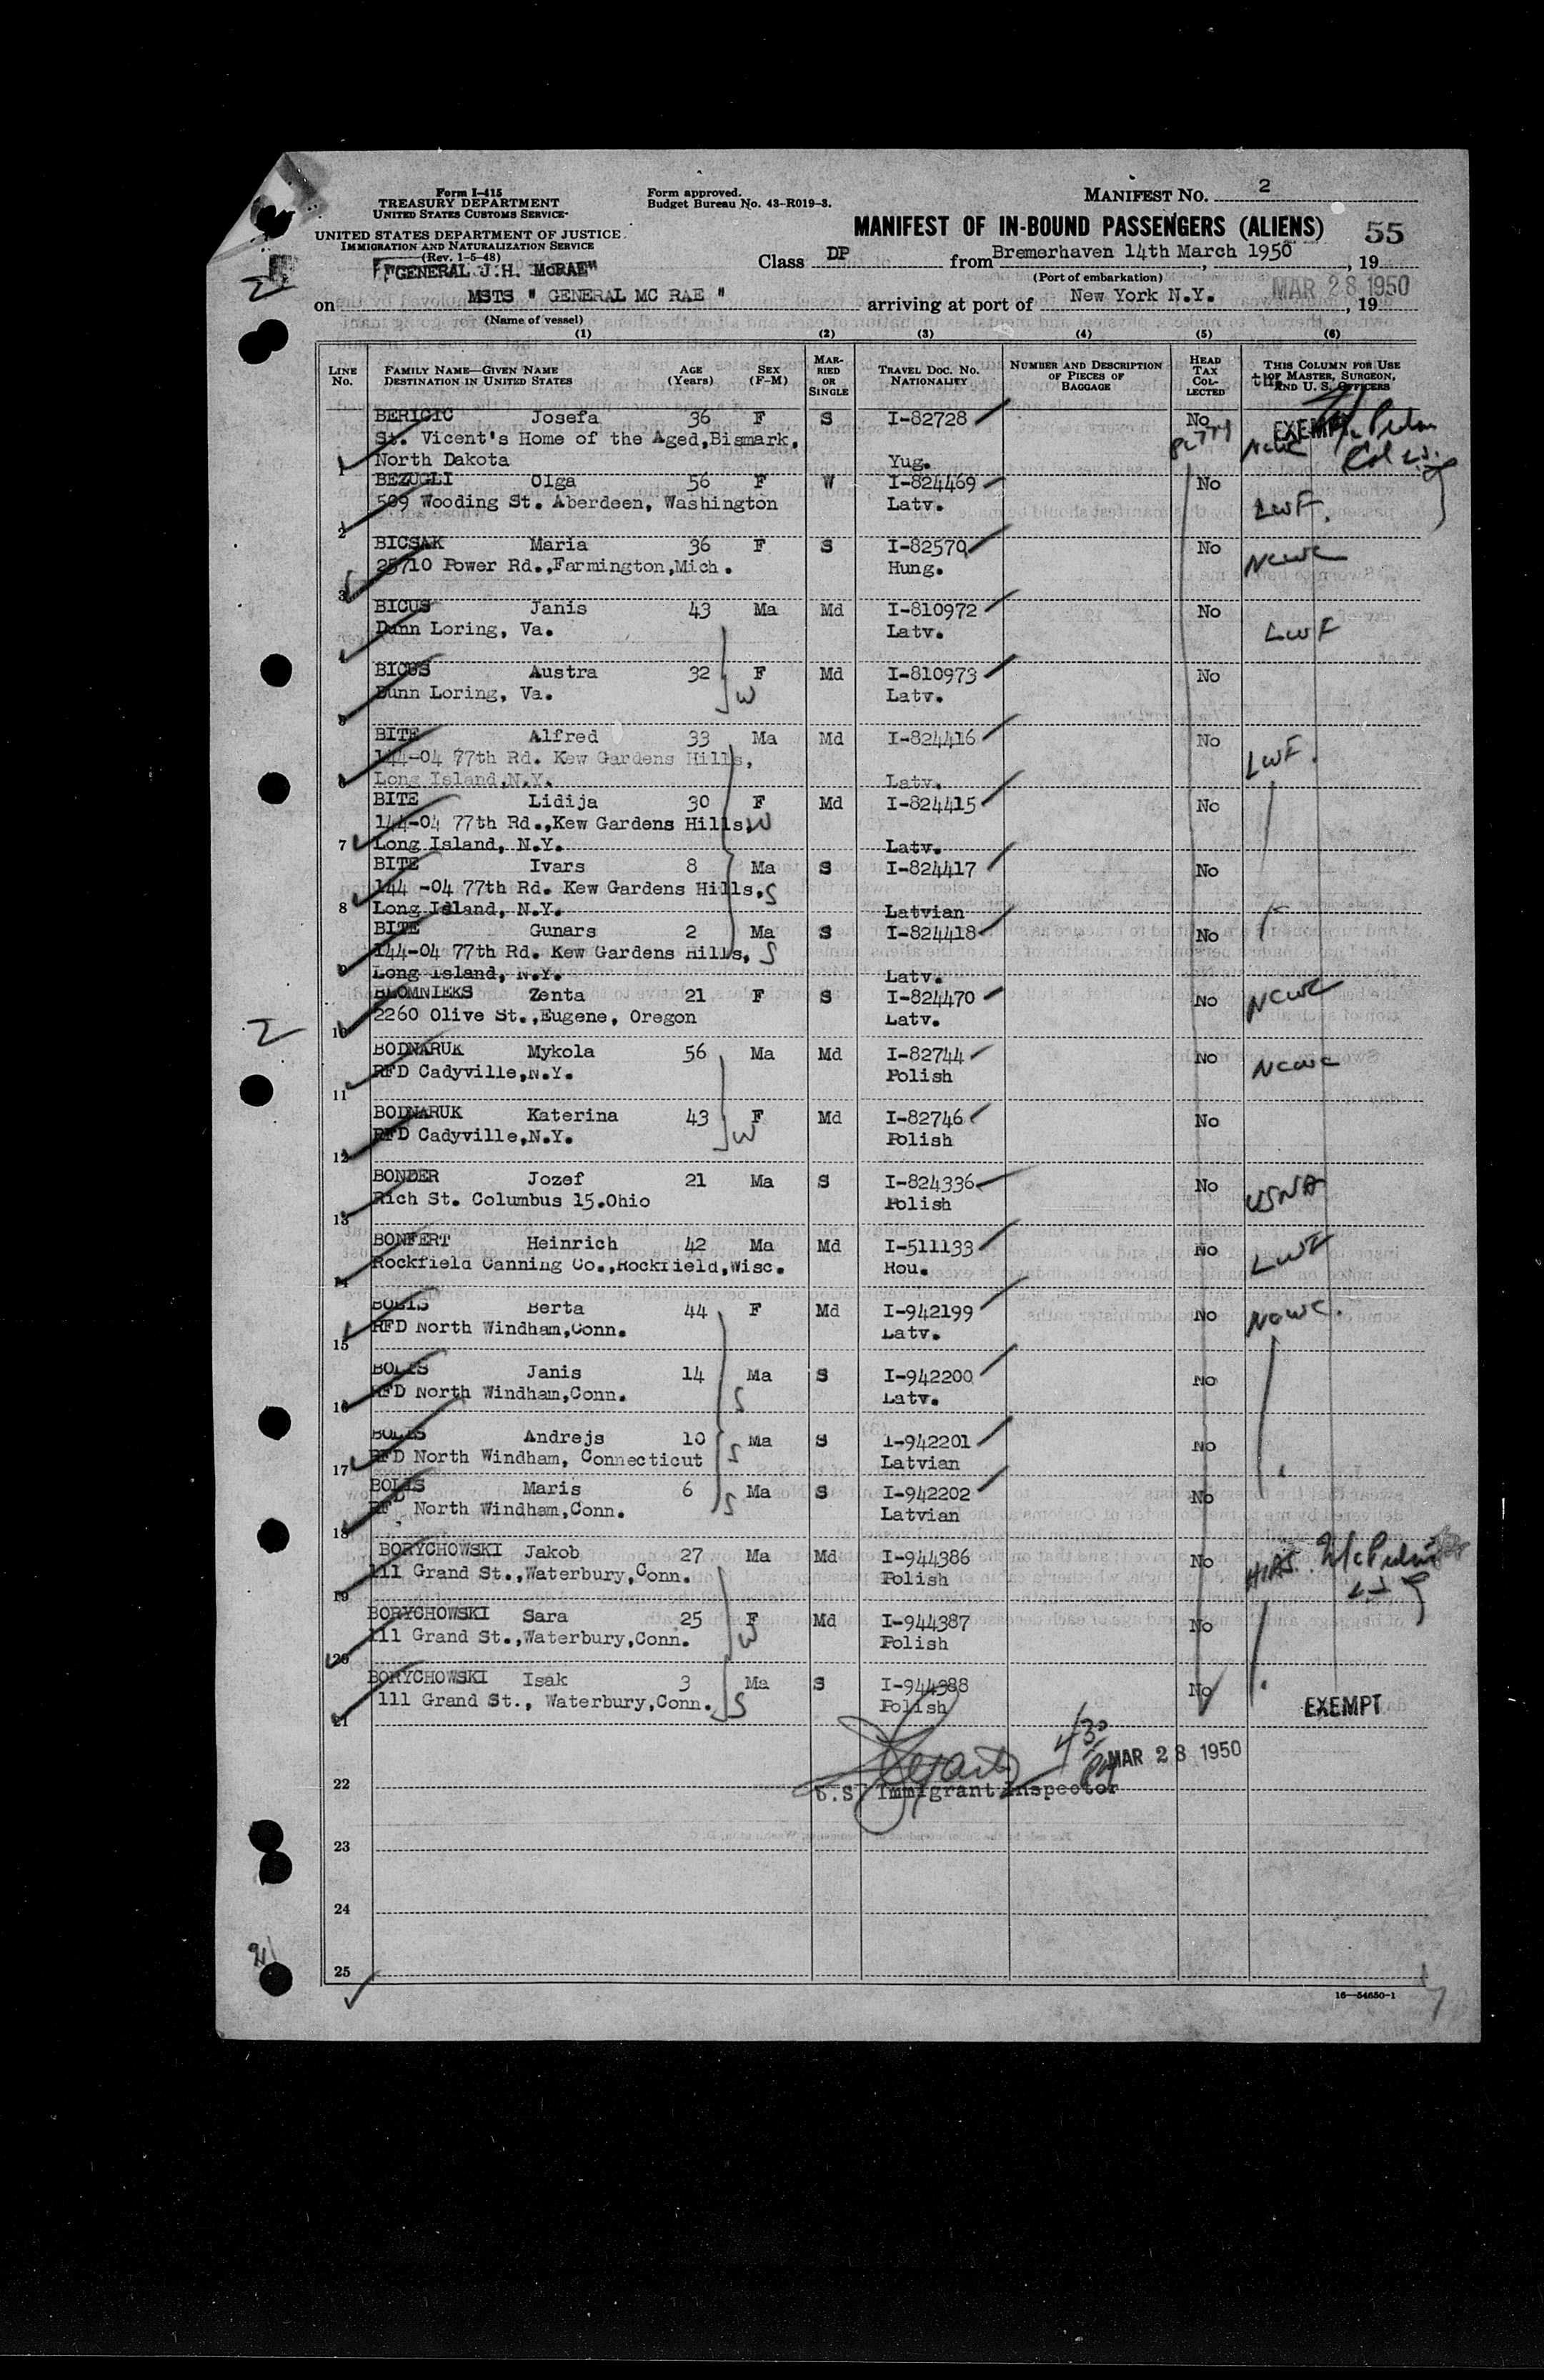 Form I-415
TREASURY DEPARTMENT
UNITED STATES CUSTOMS SERVICE
UNITED STATES DEPARTMENT OF JUSTICE
IMMIGRATION AND NATURALIZATION SERVICE
(Rev. 1-5-48)
Form approved.
Budget Bureau No. 43-R019-3.
MANIFEST NO. 2
MANIFEST OF IN-BOUND PASSENGERS (ALIENS) 55
"GENERAL J.H. McRAE"
Class DP from Bremerhaven 14th March 1950, 19
(Port of embarkation)
on MSTS " GENERAL MC RAE " arriving at port of New York N.Y. MAR 28 1950, 19
(Name of vessel)
(1) (2) (3) (4) (5) (6)
LINE No. FAMILY NAME—GIVEN NAME DESTINATION IN UNITED STATES AGE (Years) SEX (F-M) MARRIED OR SINGLE TRAVEL DOC. NO. NATIONALITY NUMBER AND DESCRIPTION OF PIECES OF BAGGAGE HEAD TAX COLLECTED THIS COLUMN FOR USE OF MASTER, SURGEON, AND U. S. OFFICERS
BERICIC Josefa 36 F S I-82728 No EXEMPT
St. Vicent's Home of the Aged,Bismark, NCWC
1 North Dakota Yug.
BEZUGLI Olga 56 F W I-824469 No
509 Wooding St. Aberdeen, Washington Latv. LWF.
2
BICSAK Maria 36 F S I-82570 No NCWC
25710 Power Rd.,Farmington,Mich. Hung.
3
BICUS Janis 43 Ma Md I-810972 No
Dunn Loring, Va. Latv. LWF
4
BICUS Austra 32 F Md I-810973 No
Dunn Loring, Va. W Latv.
5
BITE Alfred 33 Ma Md I-824416 No
144-04 77th Rd. Kew Gardens Hills, LWF.
6 Long Island,N.Y. Latv.
BITE Lidija 30 F Md I-824415 No
144-04 77th Rd.,Kew Gardens Hills, W
7 Long Island, N.Y. Latv.
BITE Ivars 8 Ma S I-824417 No
144 -04 77th Rd. Kew Gardens Hills, S
8 Long Island, N.Y. Latvian
BITE Gunars 2 Ma S I-824418 No
144-04 77th Rd. Kew Gardens Hills, S
9 Long Island, N.Y. Latv.
BLOMNIEKS Zenta 21 F S I-824470 No NCWC
2260 Olive St.,Eugene, Oregon Latv.
10
BODNARUK Mykola 56 Ma Md I-82744 No NCWC
RFD Cadyville,N.Y. Polish
11
BODNARUK Katerina 43 F Md I-82746 No
RFD Cadyville,N.Y. W Polish
12
BONDER Jozef 21 Ma S I-824336 No USNA
Rich St. Columbus 15.Ohio Polish
13
BONFERT Heinrich 42 Ma Md I-511133 No LWF
Rockfield Canning Co.,Rockfield,Wisc. Rou.
14
BOLIS Berta 44 F Md I-942199 No NCWC.
RFD North Windham,Conn. Latv.
15
BOLIS Janis 14 Ma S I-942200 No
RFD North Windham,Conn. S Latv.
16
BOLIS Andrejs 10 Ma S I-942201 No
RFD North Windham, Connecticut S Latvian
17
BOLIS Maris 6 Ma S I-942202 No
RFD, North Windham,Conn. S Latvian
18
BORYCHOWSKI Jakob 27 Ma Md I-944386 No HIAS.
111 Grand St.,Waterbury,Conn. Polish
19
BORYCHOWSKI Sara 25 F Md I-944387 No
111 Grand St.,Waterbury,Conn. W Polish
20
BORYCHOWSKI Isak 3 Ma S I-944388 No
111 Grand St., Waterbury,Conn. S Polish EXEMPT
21
MAR 28 1950
22 U.S. Immigrant Inspector
23
24
25
16—54650-1